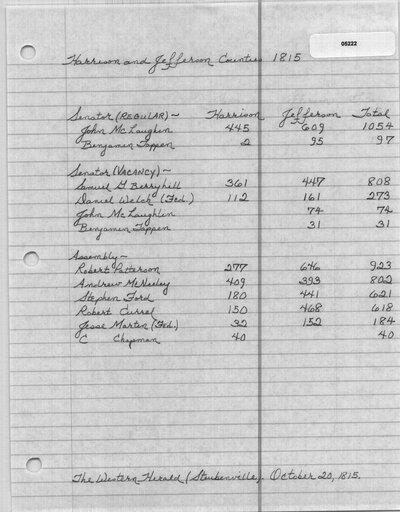 05222
Harrison and Jefferson Counties 1815
Senator (REGULAR) ~ Harrison Jefferson Total
John McLaughlin 445 609 1054
Benjamin Tappen 2 95 97
Senator (VACANCY) ~
Samuel G Berryhill 361 447 808
Daniel Welch (Fed.) 112 161 273
John McLaughlin 74 74
Benjamin Tappen 31 31
Assembly ~
Robert Patterson 277 646 923
Andrew McNeeley 409 393 802
Stephen Ford 180 441 621
Robert Currel 150 468 618
Jesse Marten (Fed.) 32 152 184
C Chapman 40 40
The Western Herald (Steubenville). October 20, 1815.